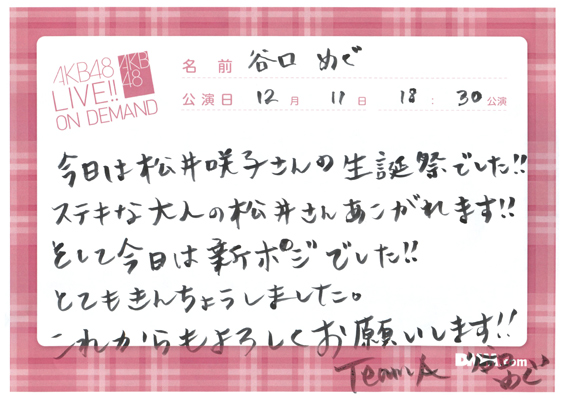 AKB48
LIVE!!
ON DEMAND
AKB
48
名前 谷口 めぐ
公演日 12月 11日 18:30公演
今日は松井咲子さんの生誕祭でした!!
ステキな大人の松井さんあこがれます!!
そして今日は新ポジでした!!
とてもきんちょうしました。
これからもよろしくお願いします!!
.com
TeamA 谷口めぐ